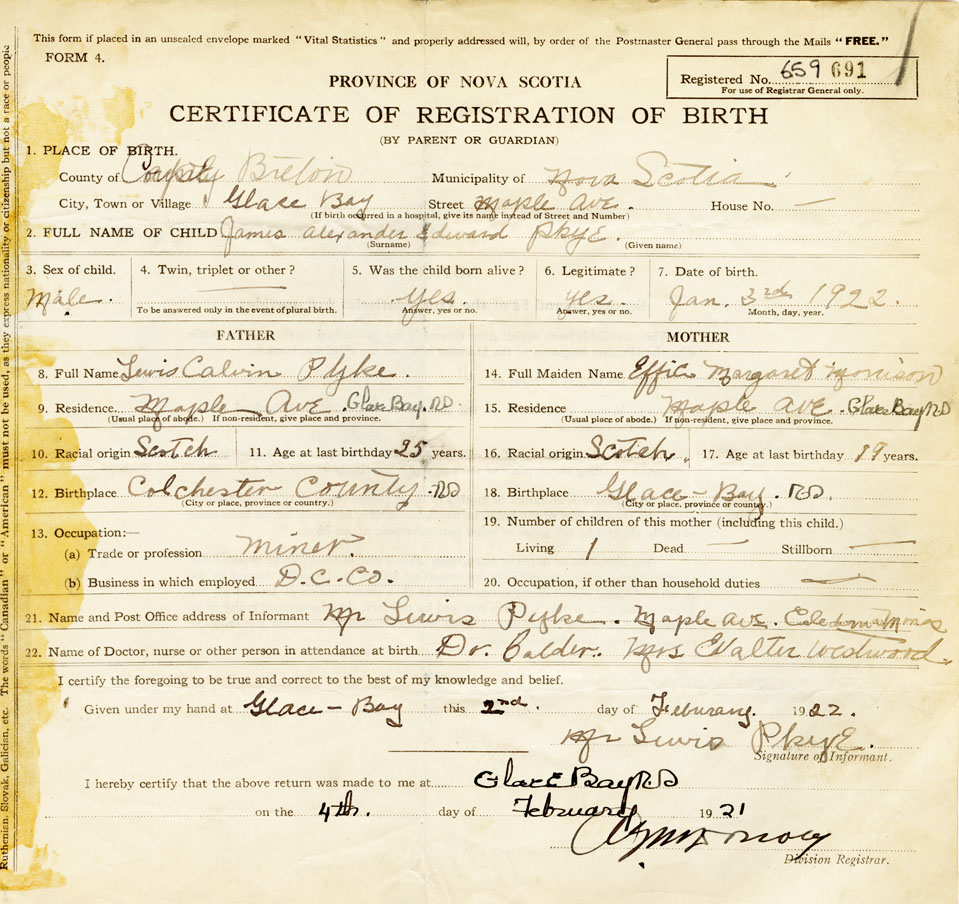 This form if placed in an unsealed envelope marked "Vital Statistics" and properly addressed will, by order of the Postmaster General pass through the Mails "FREE."
FORM 4.
Registered No. 659 691
For use of Registrar General only.
PROVINCE OF NOVA SCOTIA
CERTIFICATE OF REGISTRATION OF BIRTH
(BY PARENT OR GUARDIAN)
1. PLACE OF BIRTH.
County of Cape Breton Municipality of Nova Scotia
City, Town or Village Glace Bay Street Maple Ave. House No. —
(If birth occurred in a hospital, give its name instead of Street and Number)
2. FULL NAME OF CHILD James Alexander Edward Pkye.
(Surname) (Given name)
3. Sex of child. 4. Twin, triplet or other? 5. Was the child born alive? 6. Legitimate? 7. Date of birth.
Male. — Yes. Yes. Jan. 3rd 1922.
To be answered only in the event of plural birth. Answer, yes or no. Answer, yes or no. Month, day, year.
FATHER MOTHER
8. Full Name Lewis Calvin Pyke. 14. Full Maiden Name Effie Margaret Morrison
9. Residence Maple Ave. Glace Bay RD 15. Residence Maple Ave Glace Bay RD
(Usual place of abode.) If non-resident, give place and province. (Usual place of abode.) If non-resident, give place and province.
10. Racial origin Scotch 11. Age at last birthday 25 years. 16. Racial origin Scotch. 17. Age at last birthday 19 years.
12. Birthplace Colchester County. RD 18. Birthplace Glace-Bay. RD.
(City or place, province or country.) (City or place, province or country.)
13. Occupation:— 19. Number of children of this mother (including this child.)
(a) Trade or profession Miner. Living 1 Dead — Stillborn —
(b) Business in which employed D.C.Co. 20. Occupation, if other than household duties —
21. Name and Post Office address of Informant Mr Lewis Pyke. Maple Ave. Caledonia Mines
22. Name of Doctor, nurse or other person in attendance at birth Dr. Calder. Mrs Walter Westward.
I certify the foregoing to be true and correct to the best of my knowledge and belief.
Given under my hand at Glace-Bay this 2nd. day of Feburany. 1922.
Mr Lewis Pkye.
Signature of Informant.
I hereby certify that the above return was made to me at Glace Bay RD
on the 4th. day of February 1921
Division Registrar.
Ruthenian, Slovak, Galician, etc. The words "Canadian" or "American" must not be used, as they express nationality or citizenship but not a race or people